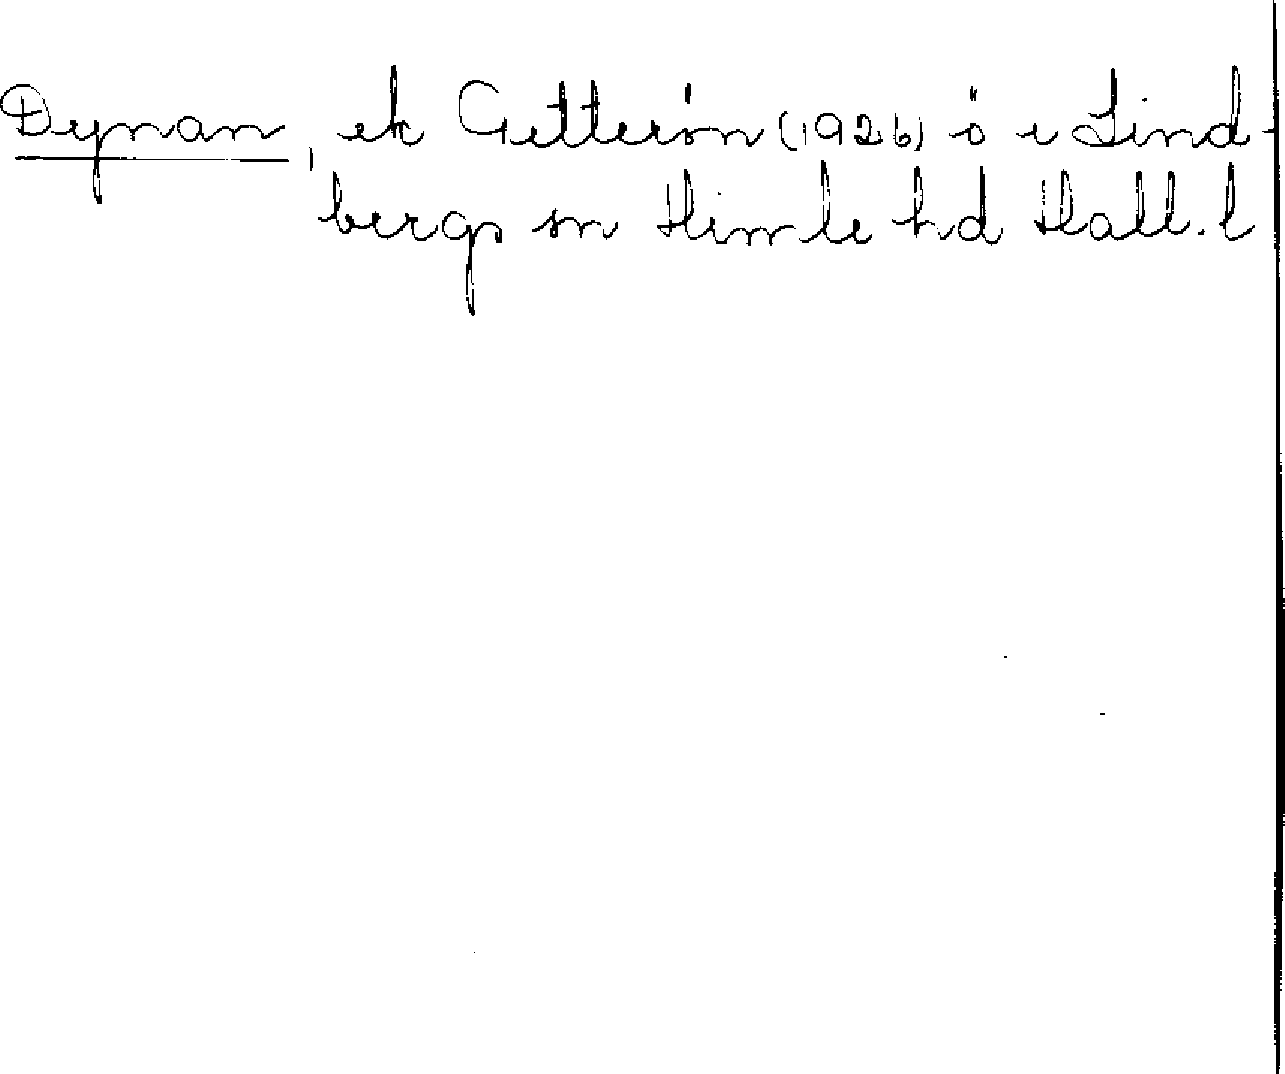 Dynan, ek Getterön (1926) ö i Lind-
bergs sn Himle hd Hall. l